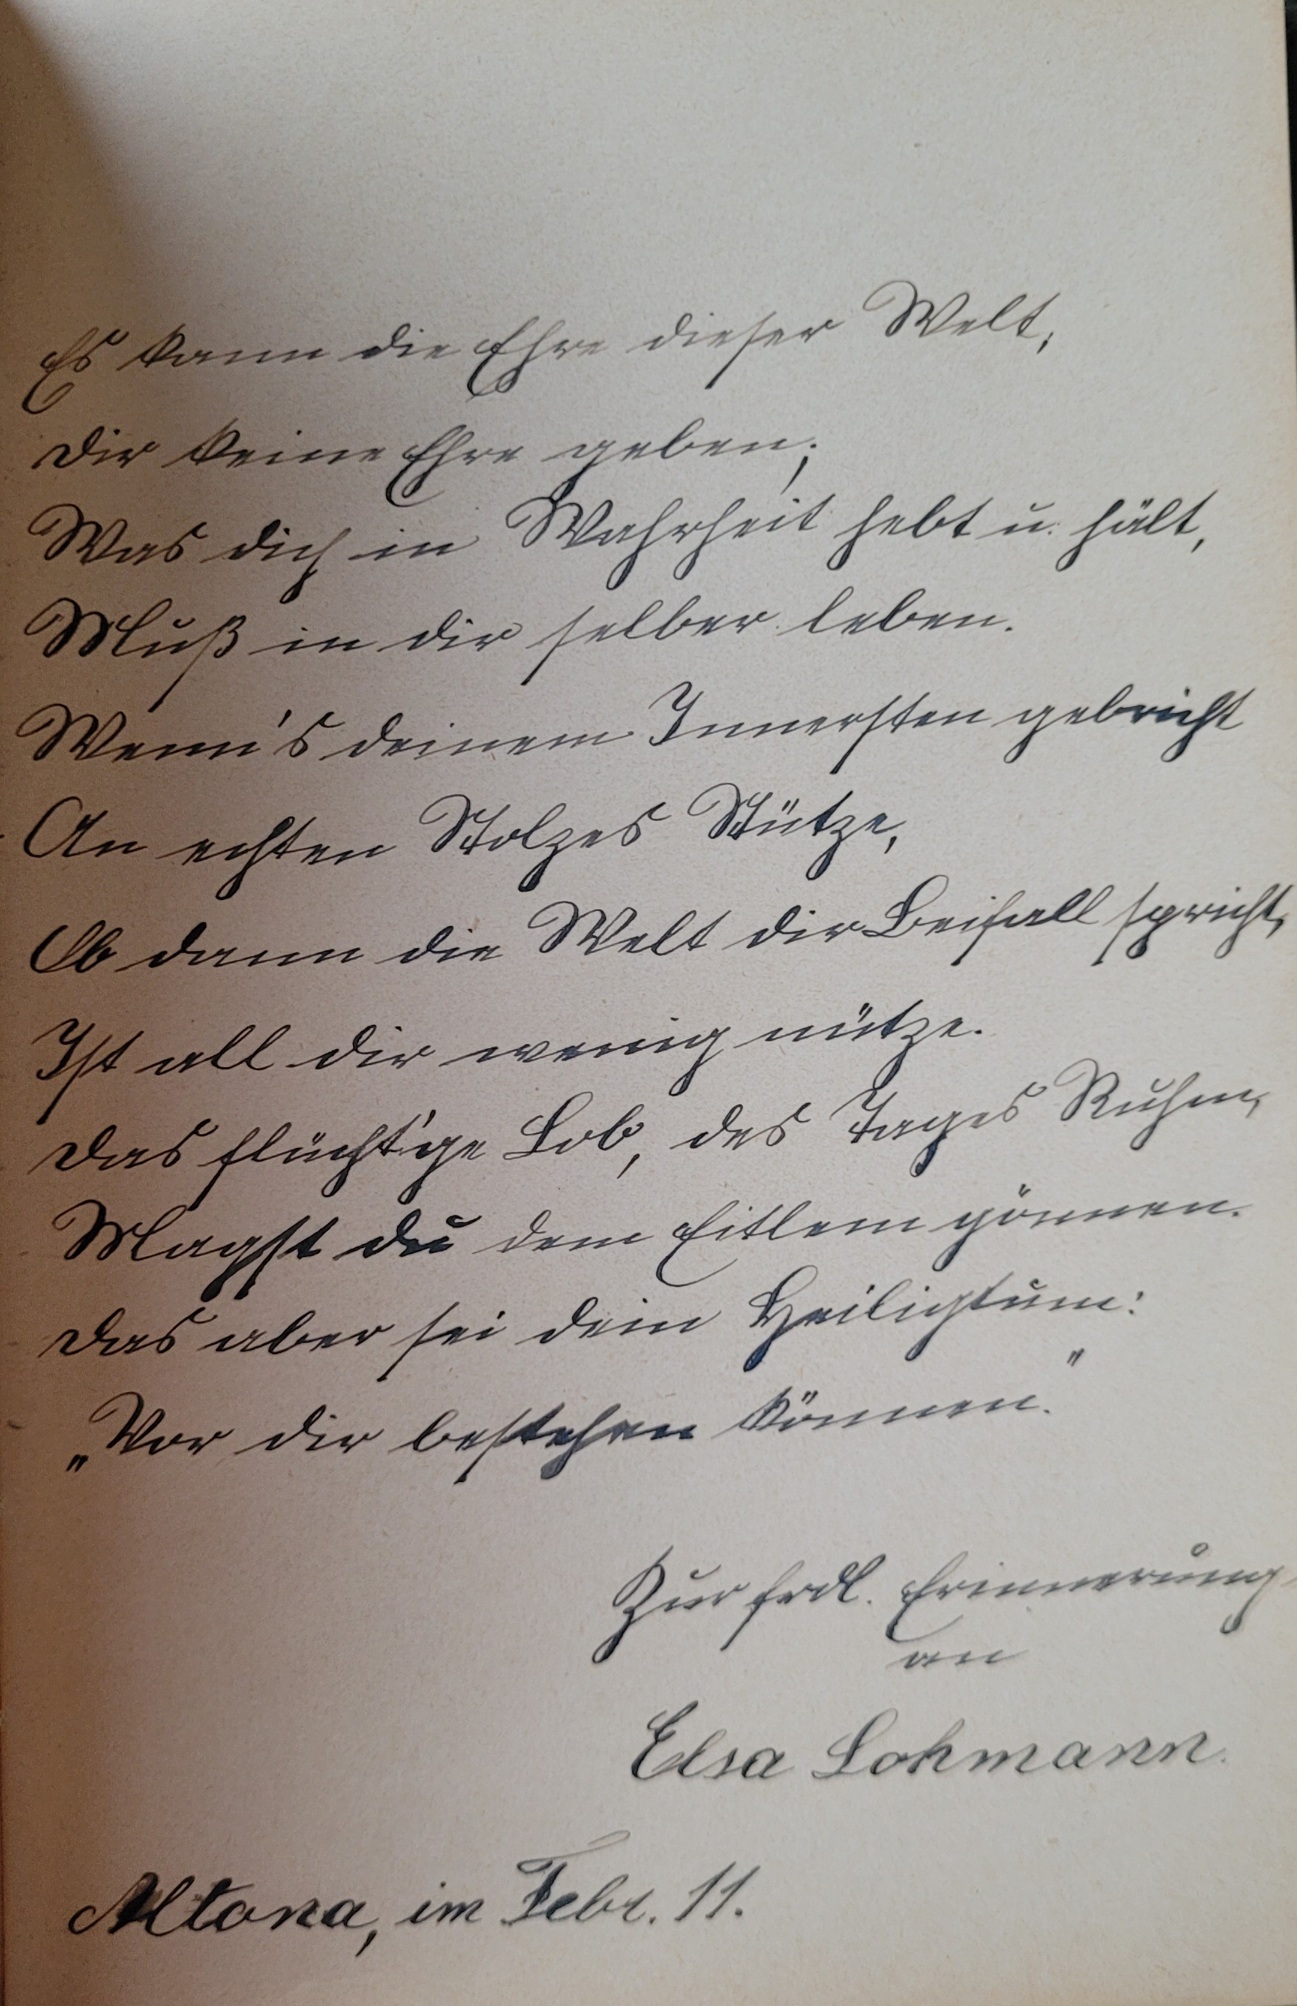 Es kann die Ehre dieser Welt,
Dir keine Ehre geben;
Was dich in Wahrheit hebt u. hält,
Muß in dir selber leben.
Wenn's deinem Innersten gebricht
An echten Stolzes Stütze,
Ob dann die Welt dir Beifall spricht,
Ist all dir wenig nütze.
Das flücht'ge Lob, des Tages Ruhm,
Magst du dem Eitlem gönnen.
Das aber sei dein Heiligtum:
„Vor dir bestehen können."
Zur frdl. Erinnerung
an
Elsa Lohmann.
Altona, im Febr. 11.